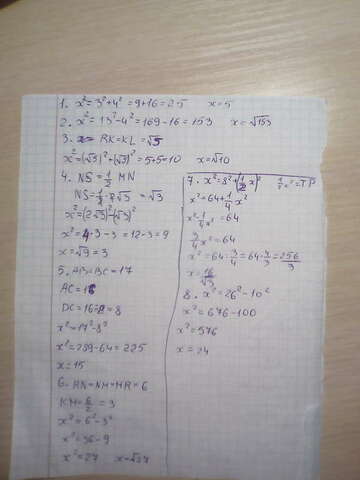 1. x²=3²+4²=9+16=25 x=5
2. x²=13²-4²=169-16=153 x=√153
3. RK=KL=√5
x²=(√5)²+(√5)²=5+5=10 x=√10
4. NS=1/2 MN
=√3
x²=(2√3)²-(√3)²
x²=4·3-3=12-3=9
x=√9=3
5. AB=BC=17
AC=16
DC=16:2=8
x²=17²-8²
x²=289-64=225
x=15
6. RN=NM=MR=6
KM=6/2=3
x²=6²-3²
x²=36-9
x²=27 x=√27
7. x²=8²+(1/2x)²
x²=64+1/4x²
x²-1/4x²=64
3/4x²=64
x²=64:3/4=64·4/3=256/3
x=16/√3
8. x²=26²-10²
x²=676-100
x²=576
x=24